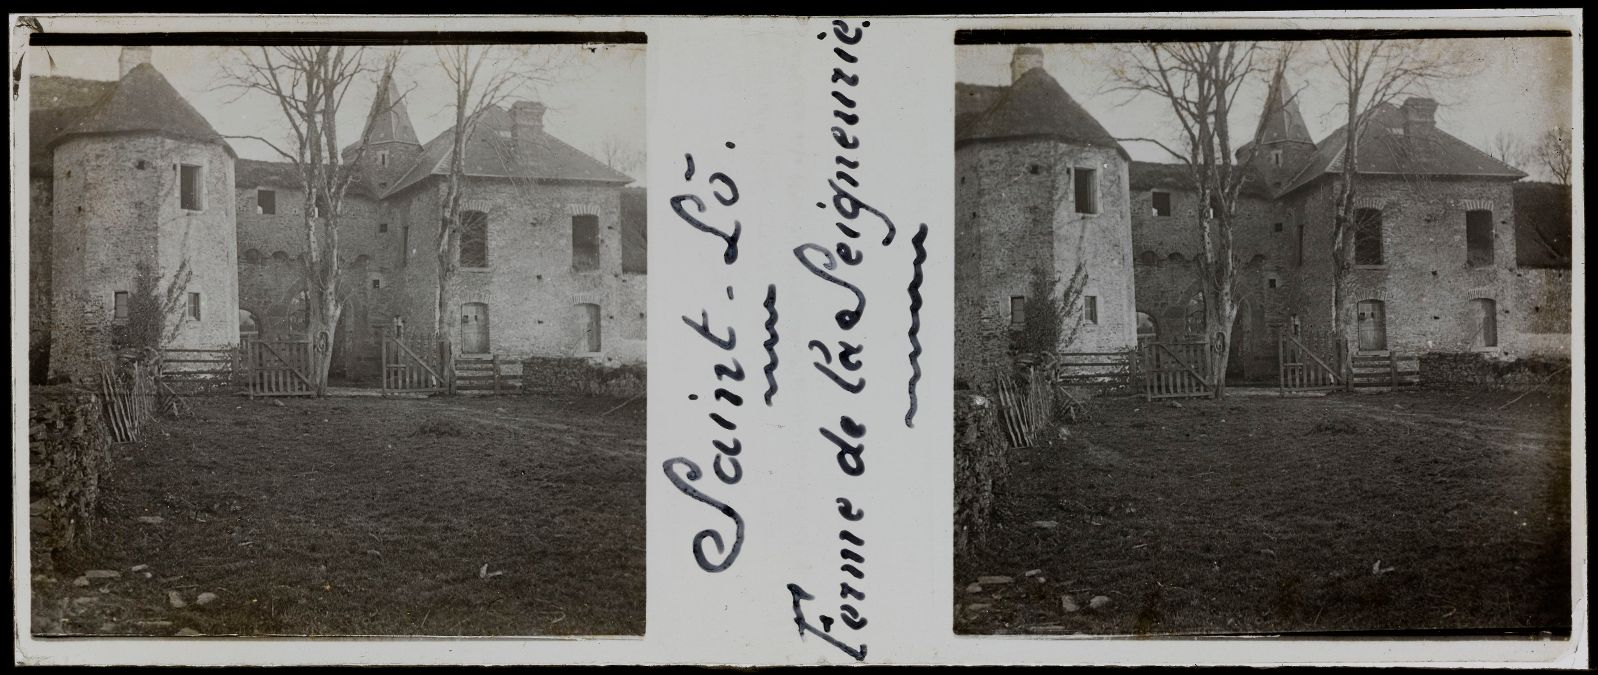 Saint-Lô.
Ferme de la Seigneurie.